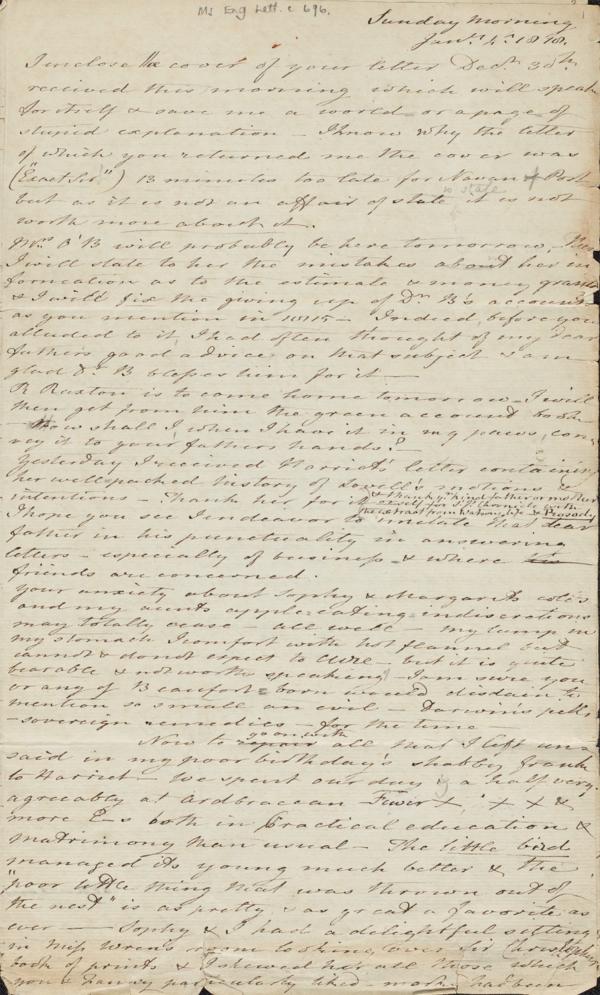 Ms Eng Lett. c 696.
Sunday Morning
Jany 4th 1818.
I inclose the cover of your letter Decr 30th
received this morning which will speak
for itself & save me a world or a page of
stupid explanation — I know why the letter
of which you returned me the cover was
("Exact Sir") 13 minutes too late for Navan Post
but as it is not an affair of state it is not
worth more about it.
Mrs O'B will probably be here tomorrow. Then
I will state to her the mistakes about her in
formation as to the estimate & money grants
& I will fix the giving up of Dr B's accounts
as you mention in 1815 — Indeed before you
alluded to it, I had often thought of my dear
fathers good advice on that subject & am
glad Dr B blesses him for it —
R Ruxton is to come home tomorrow — I will
then get from him the green account book —
— How shall I when I have it in my paws, con
vey it to your father's hands? —
Yesterday I received Harriet's letter containing
her well packed history of Lovell's motions &
intentions — Thank her for it
& thank yr kind father or mother
I hope you see I endeavor to imitate that dear
father in his punctuality in answering
letters — especially of business — & where
friends are concerned.
Your anxiety about Sophy & Margarets colds
and my aunts applecating indiscretions
may totally cease — all well — my lump in
my stomach I comfort with hot flannel but
cannot & do not expect to cure — but it is quite
bearable & not worth speaking — I am sure you
or any of B eaufort = born would disdain to
mention so small an evil — Darwin's pills
— sovereign remedies — for the time
go on with
Now to repair all that I left un=
said in my poor birthday's shabby frank
to Harriet — We spent our day & a half very
agreeably at Ardbraccan Fewer X, X X &
more E—s both in Practical education &
matrimony than usual — The little bird
managed its young much better & the
"poor little thing that was thrown out of
the nest" is as pretty & as great a favorite as
ever — Sophy & I had a delightful sitting
in Miss Wren's room looking over Sir Christopher's
book of prints & I shewed her all those which
you & Fanny particularly liked — had been